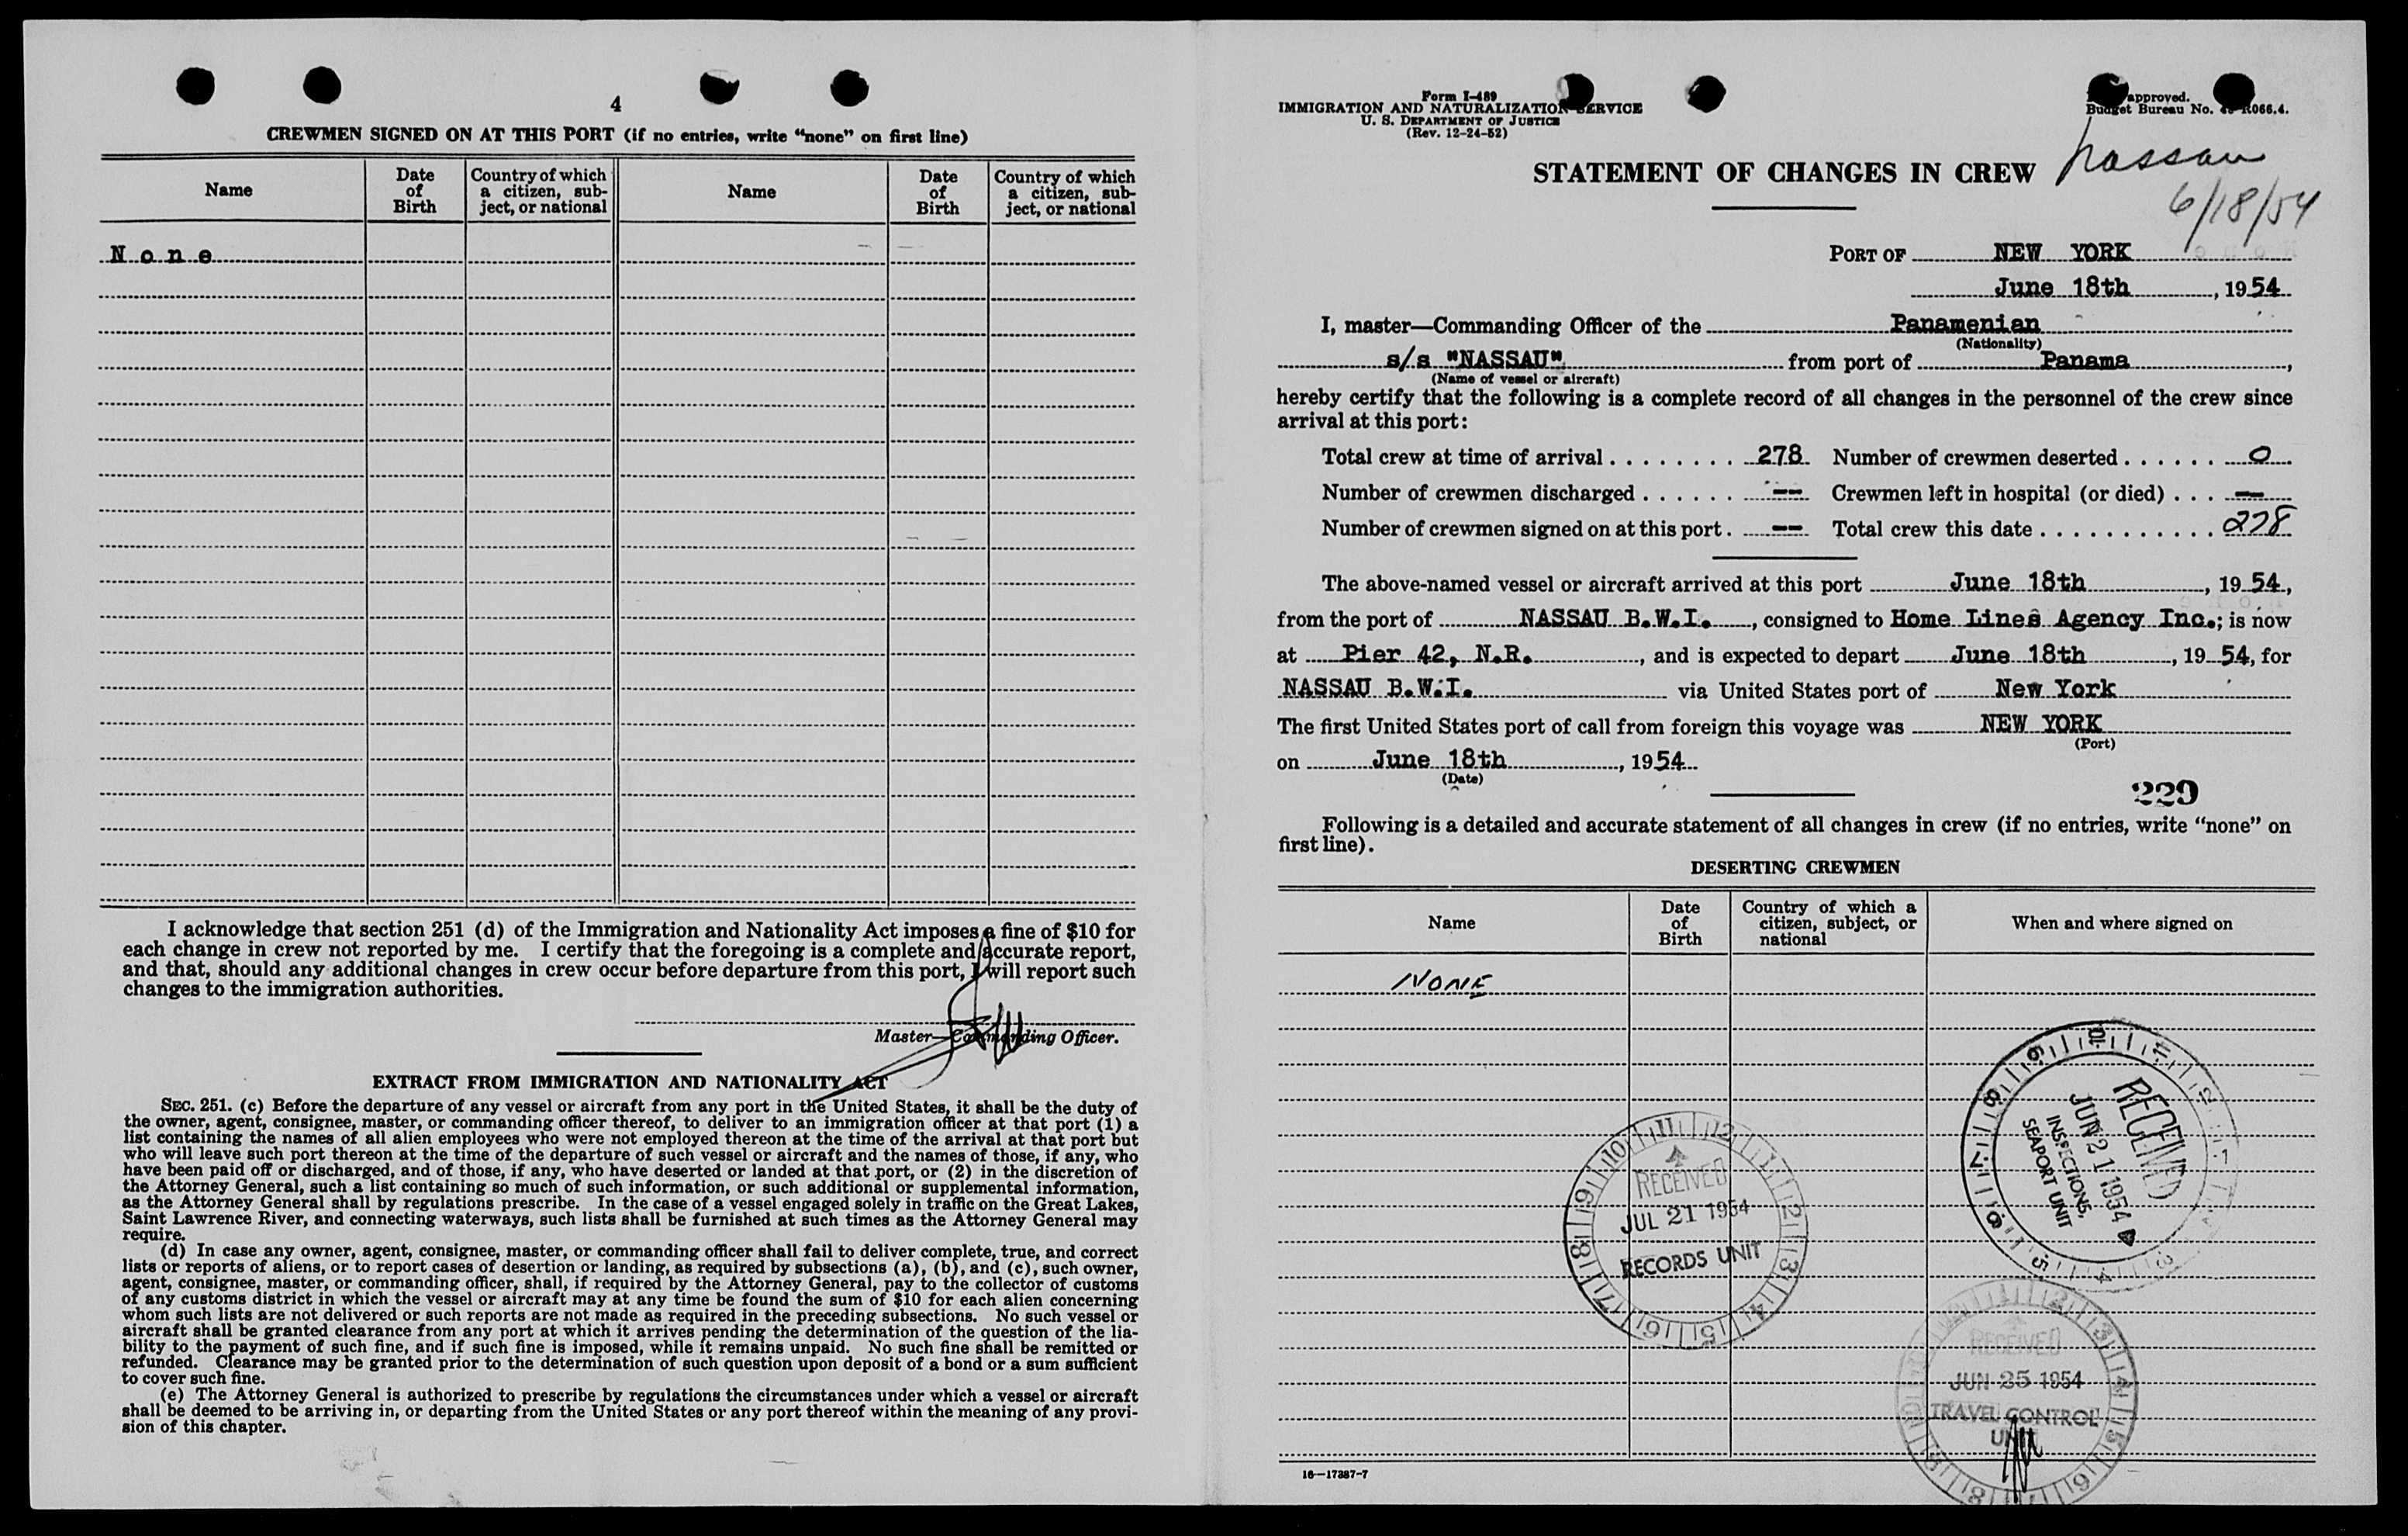 4
CREWMEN SIGNED ON AT THIS PORT (if no entries, write "none" on first line)
Name
Date of Birth
Country of which a citizen, subject, or national
Name
Date of Birth
Country of which a citizen, subject, or national
None
I acknowledge that section 251 (d) of the Immigration and Nationality Act imposes a fine of $10 for
each change in crew not reported by me. I certify that the foregoing is a complete and accurate report,
and that, should any additional changes in crew occur before departure from this port, I will report such
changes to the immigration authorities.
Master—Commanding Officer.
EXTRACT FROM IMMIGRATION AND NATIONALITY ACT
SEC. 251. (c) Before the departure of any vessel or aircraft from any port in the United States, it shall be the duty of
the owner, agent, consignee, master, or commanding officer thereof, to deliver to an immigration officer at that port (1) a
list containing the names of all alien employees who were not employed thereon at the time of the arrival at that port but
who will leave such port thereon at the time of the departure of such vessel or aircraft and the names of those, if any, who
have been paid off or discharged, and of those, if any, who have deserted or landed at that port, or (2) in the discretion of
the Attorney General, such a list containing so much of such information, or such additional or supplemental information,
as the Attorney General shall by regulations prescribe. In the case of a vessel engaged solely in traffic on the Great Lakes,
Saint Lawrence River, and connecting waterways, such lists shall be furnished at such times as the Attorney General may
require.
(d) In case any owner, agent, consignee, master, or commanding officer shall fail to deliver complete, true, and correct
lists or reports of aliens, or to report cases of desertion or landing, as required by subsections (a), (b), and (c), such owner,
agent, consignee, master, or commanding officer, shall, if required by the Attorney General, pay to the collector of customs
of any customs district in which the vessel or aircraft may at any time be found the sum of $10 for each alien concerning
whom such lists are not delivered or such reports are not made as required in the preceding subsections. No such vessel or
aircraft shall be granted clearance from any port at which it arrives pending the determination of the question of the lia-
bility to the payment of such fine, and if such fine is imposed, while it remains unpaid. No such fine shall be remitted or
refunded. Clearance may be granted prior to the determination of such question upon deposit of a bond or a sum sufficient
to cover such fine.
(e) The Attorney General is authorized to prescribe by regulations the circumstances under which a vessel or aircraft
shall be deemed to be arriving in, or departing from the United States or any port thereof within the meaning of any provi-
sion of this chapter.
Form I-489
IMMIGRATION AND NATURALIZATION SERVICE
U. S. DEPARTMENT OF JUSTICE
(Rev. 12-24-52)
approved.
Budget Bureau No. R066.4.
STATEMENT OF CHANGES IN CREW
Nassau
6/18/54
PORT OF NEW YORK
June 18th, 1954
I, master—Commanding Officer of the Panamenian
(Nationality)
s/s "NASSAU" from port of Panama,
(Name of vessel or aircraft)
hereby certify that the following is a complete record of all changes in the personnel of the crew since
arrival at this port:
Total crew at time of arrival . . . . . . . . 278 Number of crewmen deserted . . . . . . 0
Number of crewmen discharged . . . . . . -- Crewmen left in hospital (or died) . . . —
Number of crewmen signed on at this port . -- Total crew this date . . . . . . . . . . . 278
The above-named vessel or aircraft arrived at this port June 18th, 19 54,
from the port of NASSAU B.W.I., consigned to Home Lines Agency Inc.; is now
at Pier 42, N.R., and is expected to depart June 18th, 19 54, for
NASSAU B.W.I. via United States port of New York
The first United States port of call from foreign this voyage was NEW YORK
(Port)
on June 18th, 1954
(Date)
229
Following is a detailed and accurate statement of all changes in crew (if no entries, write "none" on
first line).
DESERTING CREWMEN
Name
Date of Birth
Country of which a citizen, subject, or national
When and where signed on
NONE
RECEIVED
JUN 21 1954
INSPECTIONS,
SEAPORT UNIT
RECEIVED
JUL 21 1954
RECORDS UNIT
RECEIVED
JUN 25 1954
TRAVEL CONTROL
UNIT
16—17387-7